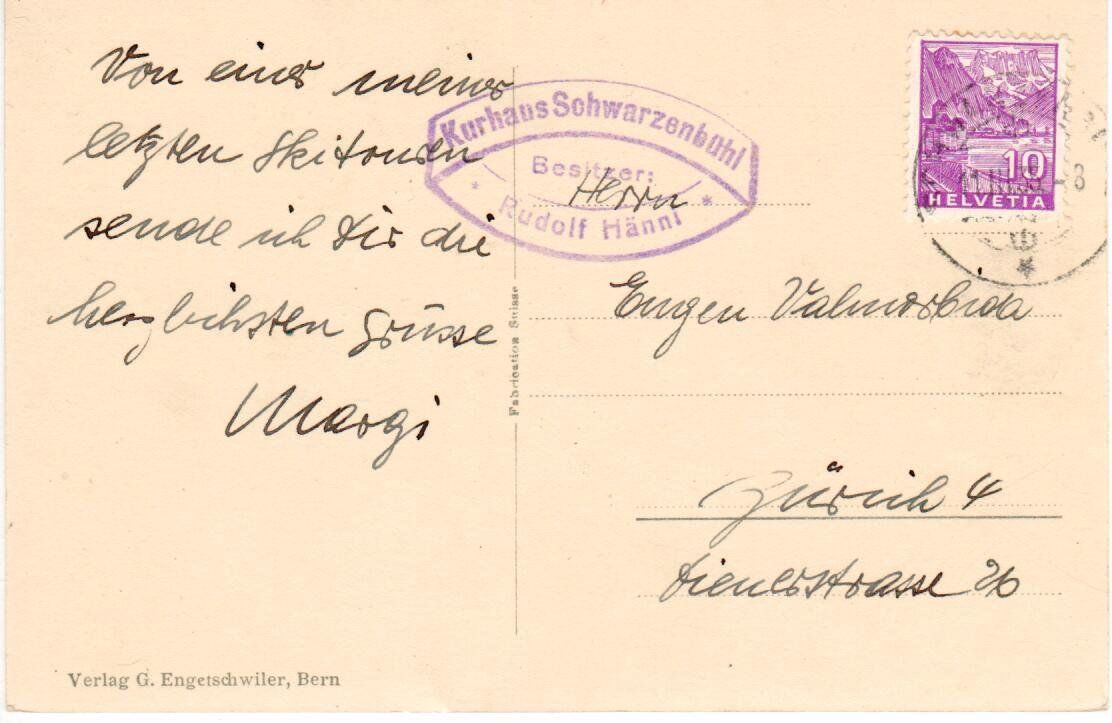 Von einer meiner
letzten Skitouren
sende ich Dir die
herzlichsten Grüsse
Margi
Verlag G. Engetschwiler, Bern
Fabrication Suisse
Kurhaus Schwarzenbühl
Besitzer:
* Rudolf Hänni *
10
HELVETIA
Herrn
Eugen Valmorbida
Zürich 4
Dienerstrasse 26